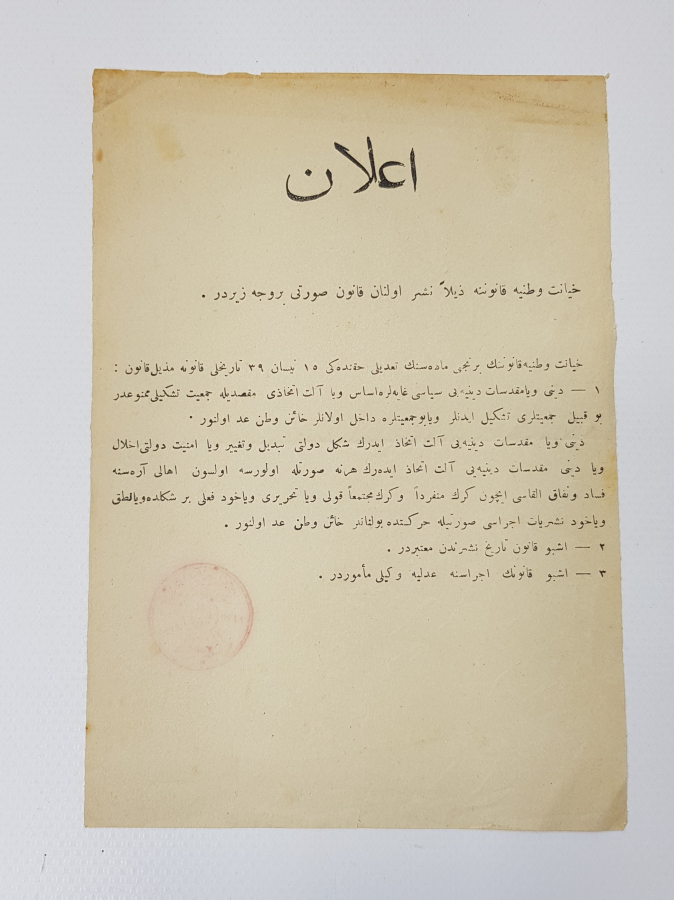 اعلان
خیانت وطنیه قانوننه ذیلاً نشر اولنان قانون صورتی بروجه زیردر .
خیانت وطنیه قانوننك برنجی ماده‌سنك تعدیلی حقنده‌کی ١٥ نیسان ٣٩ تاریخلی قانونه مذیل قانون :
١ — دینی ویا مقدسات دینیه‌یی سیاسی غایه‌لره اساس ویا آلت اتخاذی مقصدیله جمعیت تشکیلی ممنوعدر
بو قبیل جمعیتلری تشکیل ایدنلر ویا بو جمعیتلره داخل اولانلر خائن وطن عد اولنور .
دینی ویا مقدسات دینیه‌یی آلت اتخاذ ایدرك شکل دولتی تبدیل وتغییر ویا امنیت دولتی اخلال
ویا دینی مقدسات دینیه‌یی آلت اتخاذ ایده‌رك هرنه صورتله اولورسه اولسون اهالی آره‌سنه
فساد ونفاق القاسی ایچون کرك منفرداً وکرك مجتمعاً قولی ویا تحریری ویاخود فعلی بر شکلده ویا نطق
ویاخود نشریات اجراسی صورتیله حرکتده بولنانلر خائن وطن عد اولنور .
٢ — اشبو قانون تاریخ نشرندن معتبردر .
٣ — اشبو قانونك اجراسنه عدلیه وکیلی مأموردر .